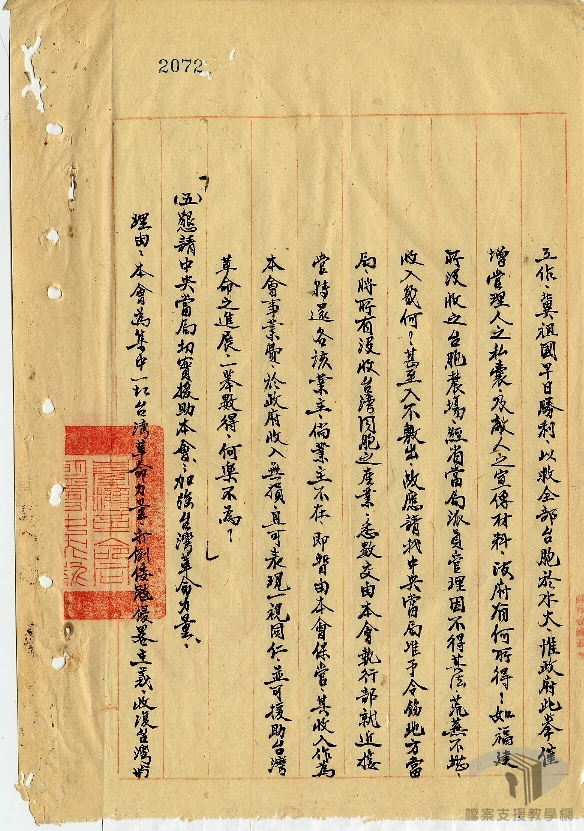 2072
工作，冀祖國早日勝利，以救全部台胞於水火，惟政府此舉，僅
增管理人之私囊，及敵人之宣傳材料，政府有何所得？如福建
所沒收之台胞農場，經省當局派員管理，因不得其法，荒蕪不堪，
收入幾何？甚至入不敷出，故應請找中央當局准予令飭地方當
局將所有沒收台灣同胞之產業，悉數交由本會執行部就近接
管，待還各該業主，倘業主不在，即暫由本會保管，其收入作為
本會事業費，於政府收入無損，且可表現一視同仁，並可援助台灣
革命之進展，一舉數得，何樂不為？
(五)懇請中央當局切實援助本會，加強台灣革命力量，
理由：本會為集中一切台灣革命力量，打倒倭寇侵畧主義，收復台灣，
檔案支援教學網